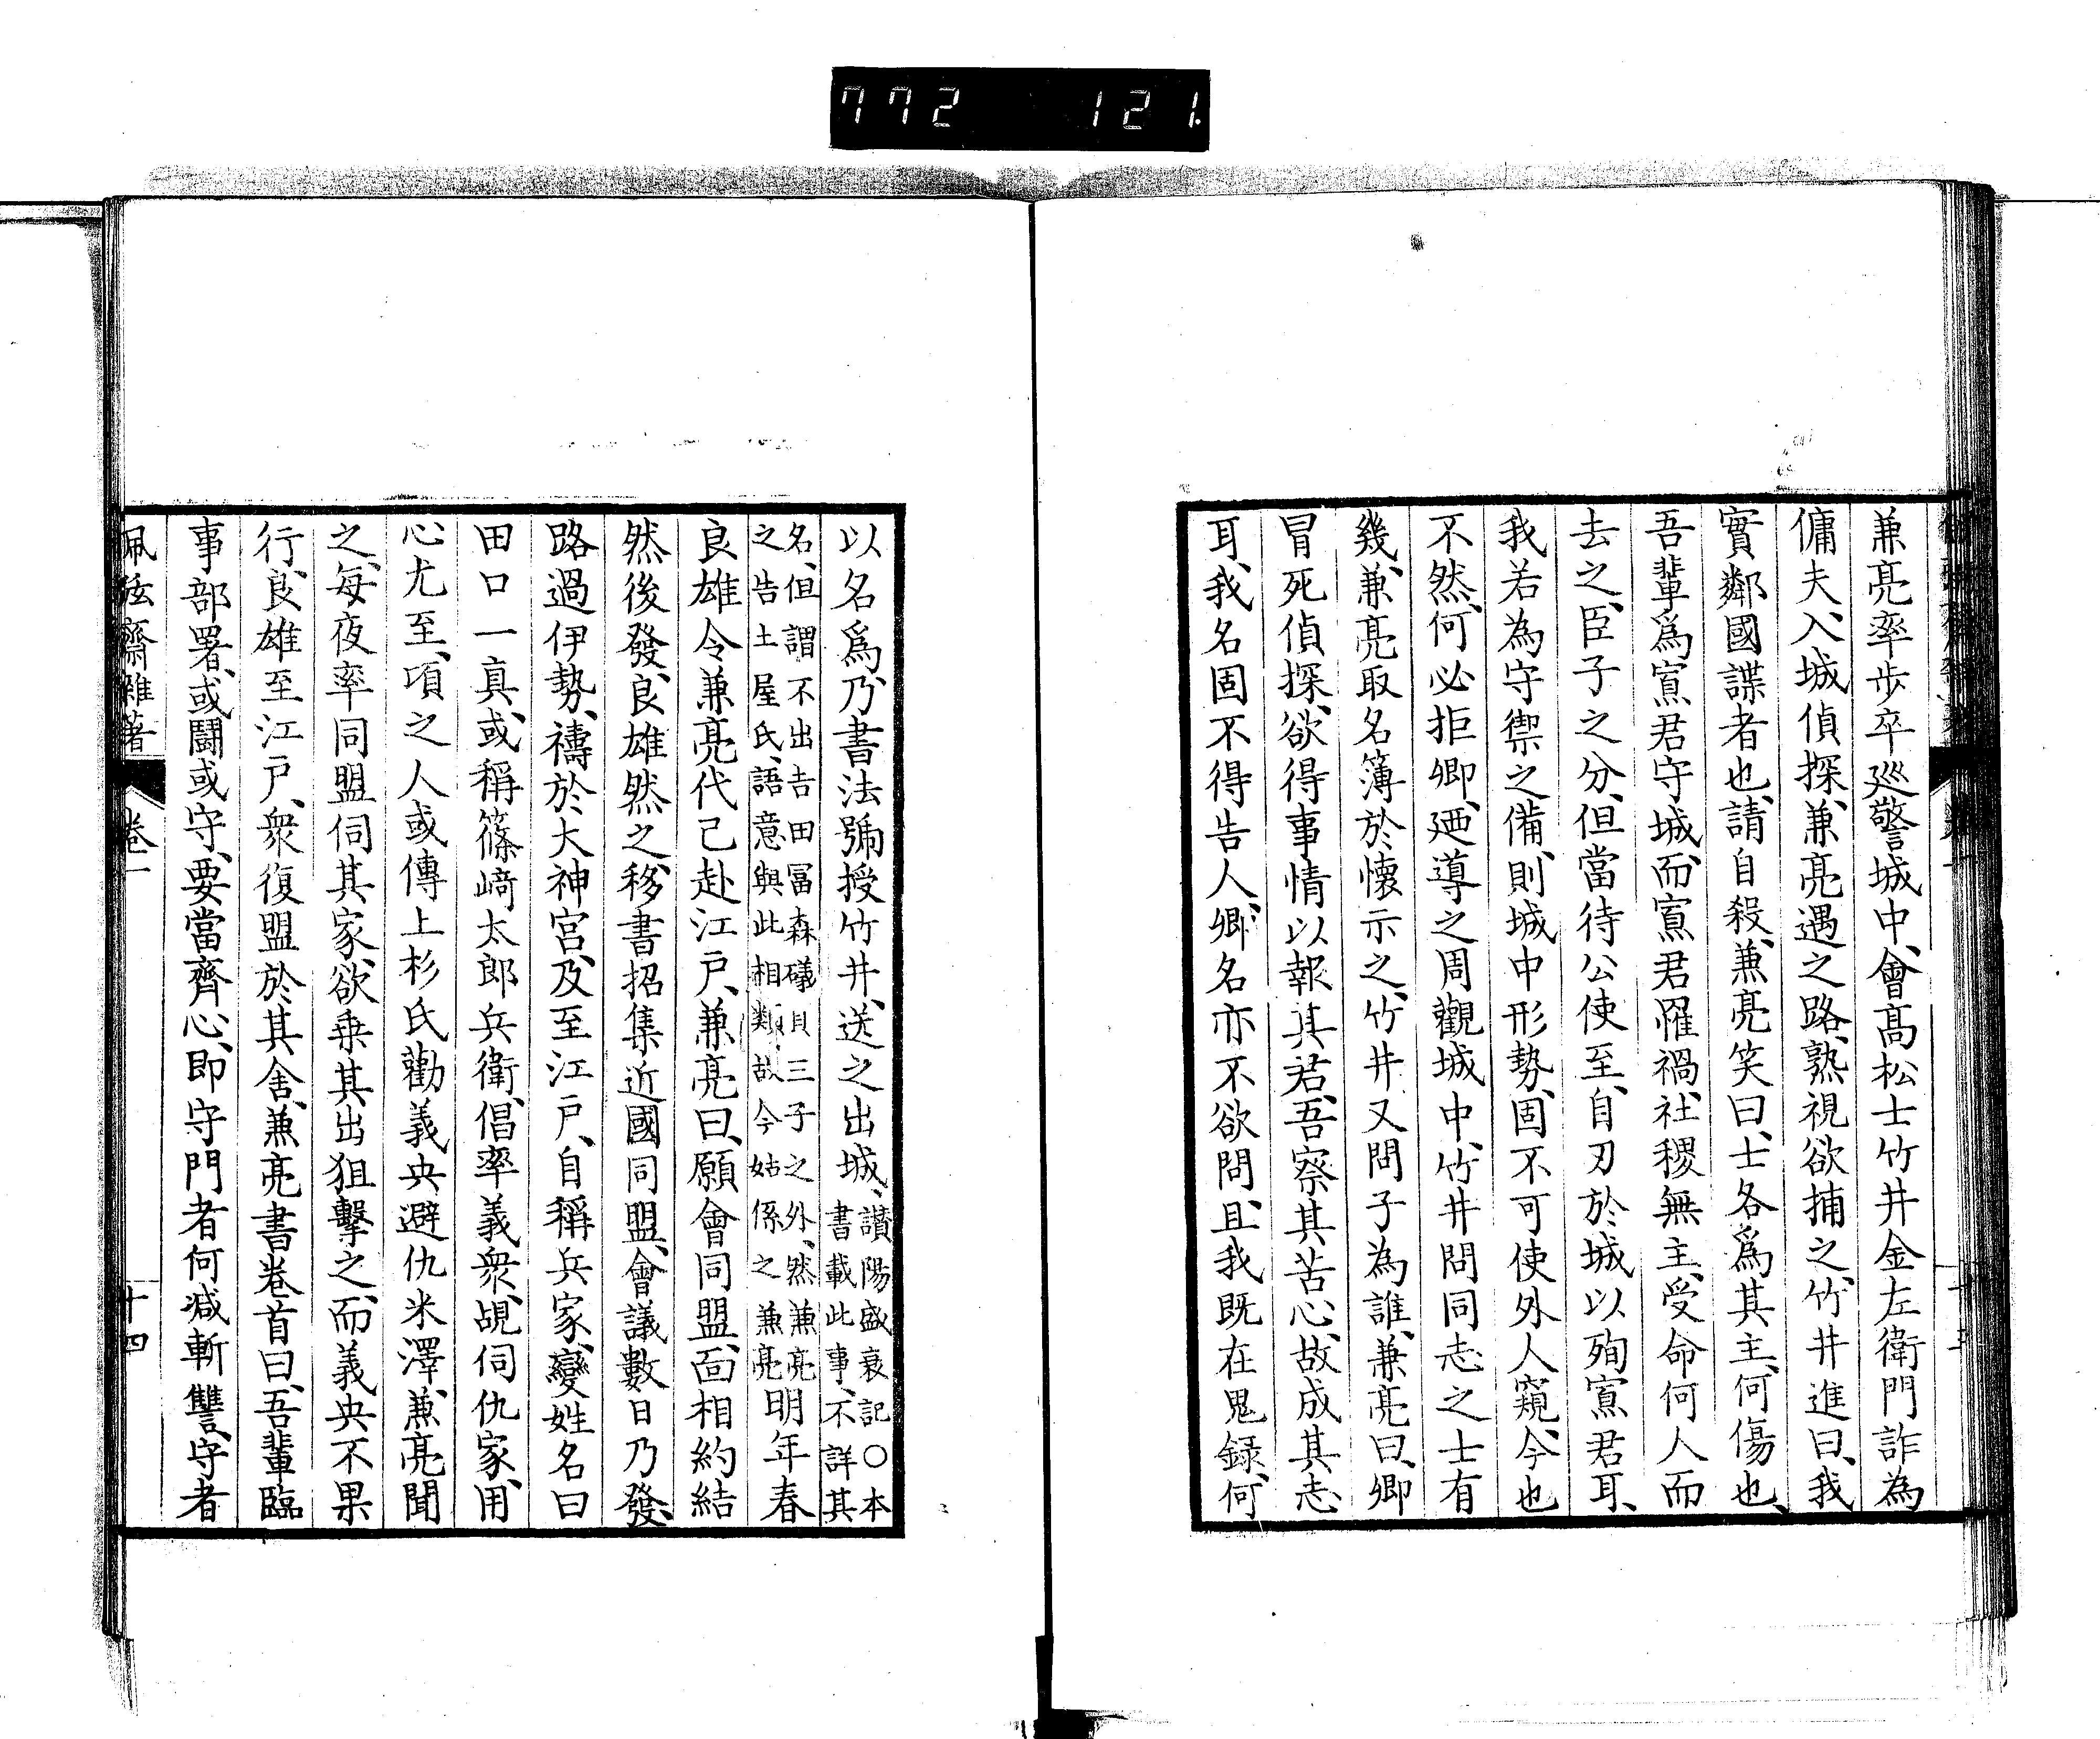 772 121.
兼亮率歩卒巡警城中、會髙松士竹井金左衛門詐為
傭夫、入城偵探、兼亮遇之路、熟視欲捕之、竹井進曰、我
實鄰國諜者也、請自殺、兼亮笑曰、士各爲其主、何傷也、
吾輩爲寡君守城、而寡君罹禍、社稷無主、受命何人而
去之、臣子之分、但當待公使至、自刃於城以殉寡君耳、
我若為守禦之備、則城中形勢、固不可使外人窺、今也
不然、何必拒卿、廼導之周觀城中、竹井問同志之士有
幾、兼亮取名簿於懷示之、竹井又問子為誰、兼亮曰、卿
冒死偵探、欲得事情以報其君、吾察其苦心、故成其志
耳、我名固不得告人、卿名亦不欲問、且我既在鬼録、何
以名爲、乃書法號授竹井、送之出城、讃陽盛衰記○本
書載此事、不詳其
名、但謂不出吉田冨森礒貝三子之外、然兼亮
之告土屋氏、語意與此相類、故今姑係之兼亮明年春
良雄令兼亮代己赴江戸、兼亮曰、願會同盟、面相約結
然後發、良雄然之、移書招集近國同盟、會議數日乃發、
路過伊勢、禱於大神宮、及至江戸、自稱兵家、變姓名曰
田口一真、或稱篠﨑太郎兵衛、倡率義衆、覘伺仇家、用
心尤至、項之人或傳上杉氏勸義央避仇米澤、兼亮聞
之、毎夜率同盟伺其家、欲乗其出狙擊之、而義央不果
行、良雄至江戸、衆復盟於其舍、兼亮書巻首曰、吾輩臨
事部署、或鬪或守、要當齊心、即守門者何减斬讐、守者
佩弦齋雜著 巻一 十四